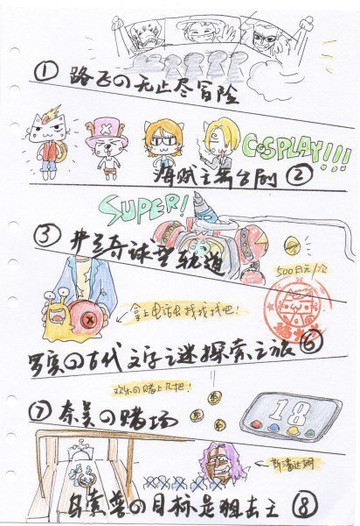 ① 路飞の无止尽冒险
COSPLAY!!!
海贼主舞台剧 ②
SUPER!
③ 弗兰奇球型轨道
500日元/次
拿上电话虫找找找吧!
罗宾の古代文字之谜探索之旅 ⑥
欢乐的赌上几把!
⑦ 奈美の赌场
18
乌索普の目标是狙击王 ⑧